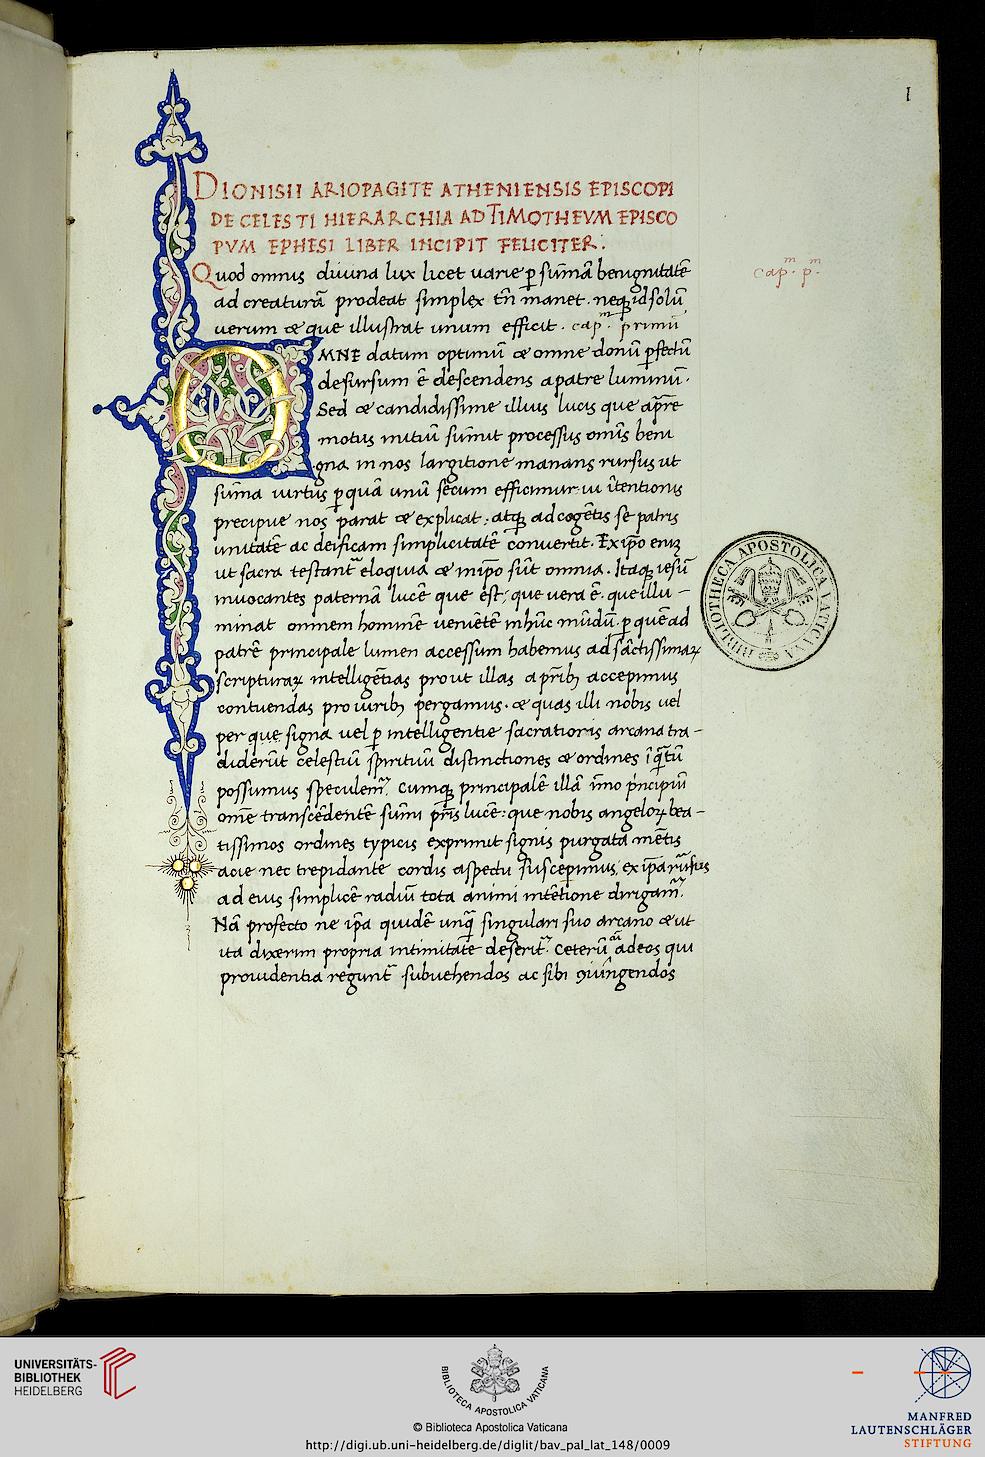 I
DIONISII ARIOPAGITE ATHENIENSIS EPISCOPI
DE CELESTI HIERARCHIA AD TIMOTHEVM EPISCO
PVM EPHESI LIBER INCIPIT FELICITER.
Quod omnis diuina lux licet uarie ꝑ sūmā benignitatē
ad creaturā prodeat simplex tn̄ manet. neqꝫ id solū
uerum & que illustrat unum efficit. capᵐ. primū
capᵐ. pᵐ.
OMNE datum optimū & omne donū ꝑfectū
desursum ē descendens a patre luminū.
Sed & candidissime illius lucis que a pr̄e
motus initiū sumit processus omīs beni
gna in nos largitione manans rursus ut
sūma uirtus ꝑ quā unū secum efficimur ui ītentionis
precipue nos parat & explicat; atqꝫ ad cogētis se patris
unitatē ac deificam simplicitatē conuertit. Ex ip̄o eniꝫ
ut sacra testant᷑ eloquia & in ip̄o sūt omnia. Itaqꝫ iesū
inuocantes paternā lucē que est; que uera ē. que illu-
minat omnem hominē ueniētē in hūc mūdū. ꝑ quē ad
patrē principale lumen accessum habemus ad sāctissimaꝝ
scripturaꝝ intelligētias prout illas a pr̄ibꝫ accepimus
contuendas pro uiribꝫ pergamus. & quas illi nobis uel
per que signa uel ꝑ intelligentie sacratioris arcana tra-
diderūt celestiū spirituū distinctiones & ordines ī q̄tū
possumus speculem᷑. Cumqꝫ principalē illā īmo pͥncipiū
om̄e transcēdentē sumi pr̄is lucē: que nobis angeloꝝ bea-
tissimos ordines typicis exprimit signis purgata mētis
acie nec trepidante cordis aspectu susceperimus, ex ip̄a rursus
ad eius simplicē radiū tota animi intētione dirigam᷑.
Nā profecto ne ip̄a quidē unq̄ singulari suo arcano & ut
ita dixerim propria intimitate deserit᷑. Ceterū ad eos qui
prouidentia regunt᷑ subuehendos ac sibi ꝯiūngendos
BIBLIOTHECA APOSTOLICA VATICANA
UNIVERSITÄTS-
BIBLIOTHEK
HEIDELBERG
BIBLIOTECA APOSTOLICA VATICANA
© Biblioteca Apostolica Vaticana
http://digi.ub.uni-heidelberg.de/diglit/bav_pal_lat_148/0009
MANFRED
LAUTENSCHLÄGER
STIFTUNG